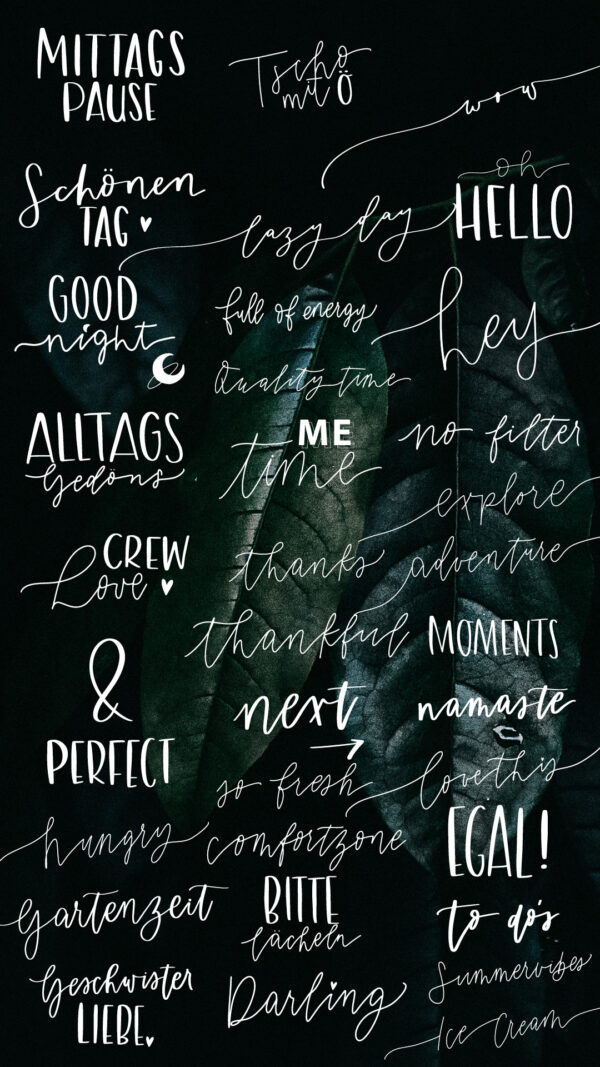 MITTAGS
PAUSE
Tschö
mit Ö
wow
Schönen
TAG
lazy day
oh
HELLO
GOOD
night
full of energy
hey
Quality time
ALLTAGS
Gedöns
ME
time
no filter
explore
CREW
Love
thanks
adventure
thankful
MOMENTS
&
PERFECT
next
namaste
so fresh
love this
hungry
comfortzone
EGAL!
Gartenzeit
BITTE
lächeln
to do's
Geschwister
LIEBE
Darling
Summervibes
Ice Cream